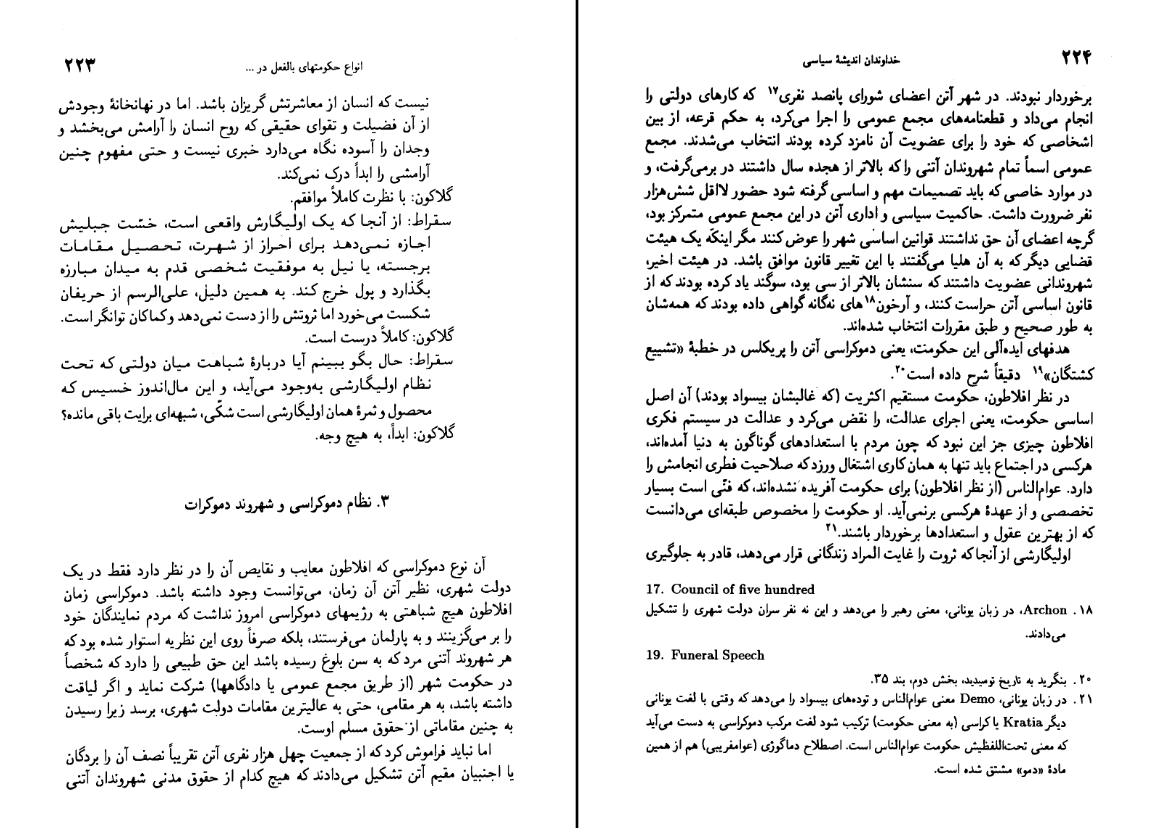 ۲۲۳
انواع حکومتهای بالفعل در ...
نیست که انسان از معاشرتش گریزان باشد. اما در نهانخانهٔ وجودش
از آن فضیلت و تقوای حقیقی که روح انسان را آرامش می‌بخشد و
وجدان را آسوده نگاه می‌دارد خبری نیست و حتی مفهوم چنین
آرامشی را ابداً درک نمی‌کند.
گلاکون: با نظرت کاملاً موافقم.
سقراط: از آنجا که یک اولیگارش واقعی است، خسّت جبلیش
اجازه نمی‌دهد برای احراز از شهرت، تحصیل مقامات
برجسته، یا نیل به موفقیت شخصی قدم به میدان مبارزه
بگذارد و پول خرج کند. به همین دلیل، علی‌الرسم از حریفان
شکست می‌خورد اما ثروتش را از دست نمی‌دهد و کماکان توانگر است.
گلاکون: کاملاً درست است.
سقراط: حال بگو ببینم آیا دربارهٔ شباهت میان دولتی که تحت
نظام اولیگارشی به‌وجود می‌آید، و این مال‌اندوز خسیس که
محصول و ثمرهٔ همان اولیگارشی است شکّی، شبهه‌ای برایت باقی مانده؟
گلاکون: ابداً، به هیچ وجه.
۳. نظام دموکراسی و شهروند دموکرات
آن نوع دموکراسی که افلاطون معایب و نقایص آن را در نظر دارد فقط در یک
دولت شهری، نظیر آتن آن زمان، می‌توانست وجود داشته باشد. دموکراسی زمان
افلاطون هیچ شباهتی به رژیمهای دموکراسی امروز نداشت که مردم نمایندگان خود
را بر می‌گزینند و به پارلمان می‌فرستند، بلکه صرفاً روی این نظریه استوار شده بود که
هر شهروند آتنی مرد که به سن بلوغ رسیده باشد این حق طبیعی را دارد که شخصاً
در حکومت شهر (از طریق مجمع عمومی یا دادگاهها) شرکت نماید و اگر لیاقت
داشته باشد، به هر مقامی، حتی به عالیترین مقامات دولت شهری، برسد زیرا رسیدن
به چنین مقاماتی از حقوق مسلم اوست.
اما نباید فراموش کرد که از جمعیت چهل هزار نفری آتن تقریباً نصف آن را بردگان
یا اجنبیان مقیم آتن تشکیل می‌دادند که هیچ کدام از حقوق مدنی شهروندان آتنی
۲۲۴
خداوندان اندیشهٔ سیاسی
برخوردار نبودند. در شهر آتن اعضای شورای پانصد نفری۱۷ که کارهای دولتی را
انجام می‌داد و قطعنامه‌های مجمع عمومی را اجرا می‌کرد، به حکم قرعه، از بین
اشخاصی که خود را برای عضویت آن نامزد کرده بودند انتخاب می‌شدند. مجمع
عمومی اسماً تمام شهروندان آتنی را که بالاتر از هجده سال داشتند در برمی‌گرفت، و
در موارد خاصی که باید تصمیمات مهم و اساسی گرفته شود حضور لااقل شش‌هزار
نفر ضرورت داشت. حاکمیت سیاسی و اداری آتن در این مجمع عمومی متمرکز بود،
گرچه اعضای آن حق نداشتند قوانین اساسی شهر را عوض کنند مگر اینکه یک هیئت
قضایی دیگر که به آن هلیا می‌گفتند با این تغییر قانون موافق باشد. در هیئت اخیر،
شهروندانی عضویت داشتند که سنشان بالاتر از سی بود، سوگند یاد کرده بودند که از
قانون اساسی آتن حراست کنند، و آرخون۱۸های نه‌گانه گواهی داده بودند که همه‌شان
به طور صحیح و طبق مقررات انتخاب شده‌اند.
هدفهای ایده‌آلی این حکومت، یعنی دموکراسی آتن را پریکلس در خطبهٔ «تشییع
کشتگان»۱۹ دقیقاً شرح داده است۲۰.
در نظر افلاطون، حکومت مستقیم اکثریت (که غالبشان بیسواد بودند) آن اصل
اساسی حکومت، یعنی اجرای عدالت، را نقض می‌کرد و عدالت در سیستم فکری
افلاطون چیزی جز این نبود که چون مردم با استعدادهای گوناگون به دنیا آمده‌اند،
هرکسی در اجتماع باید تنها به همان کاری اشتغال ورزد که صلاحیت فطری انجامش را
دارد. عوام‌الناس (از نظر افلاطون) برای حکومت آفریده نشده‌اند، که فنّی است بسیار
تخصصی و از عهدهٔ هرکسی برنمی‌آید. او حکومت را مخصوص طبقه‌ای می‌دانست
که از بهترین عقول و استعدادها برخوردار باشند.۲۱
اولیگارشی از آنجا که ثروت را غایت المراد زندگانی قرار می‌دهد، قادر به جلوگیری
17. Council of five hundred
۱۸. Archon، در زبان یونانی، معنی رهبر را می‌دهد و این نه نفر سران دولت شهری را تشکیل
می‌دادند.
19. Funeral Speech
۲۰. بنگرید به تاریخ توسیدید، بخش دوم، بند ۳۵.
۲۱. در زبان یونانی، Demo معنی عوام‌الناس و توده‌های بیسواد را می‌دهد که وقتی با لغت یونانی
دیگر Kratia یا کراسی (به معنی حکومت) ترکیب شود لغت مرکب دموکراسی به دست می‌آید
که معنی تحت‌اللفظیش حکومت عوام‌الناس است. اصطلاح دماگوژی (عوامفریبی) هم از همین
مادهٔ «دمو» مشتق شده است.